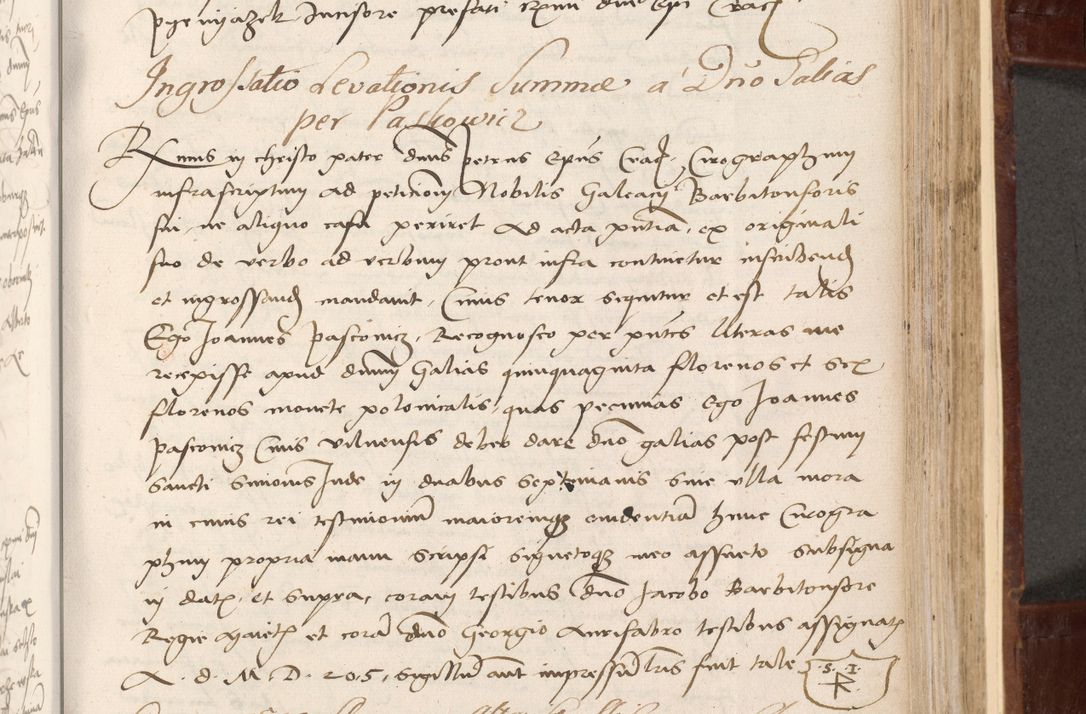 Incisore prefati
Ingrossatio Levationis Summæ a Dno Galias
per Paskowicz
Rmus in christo pater dnus petrus Epus Crac. Cirographum
infrascriptum ad petitionem Nobilis Galeacij Barbitonsoris
sui, ne aliquo casu periret Ad acta pntia, ex originali
suo de verbo ad verbum prout infra continetur inscribend
et ingrossand mandavit, Cuius tenor sequitur et est talis
Ego Joannes pasconicz, Recognosco per pntes literas me
recepisse apud dnum Galias quinquaginta florenos et sex
florenos monete polonicalis, quas pecunias Ego Joannes
pasconicz Civis vilnensis debeo dare dno galias post festum
Sancti Simonis Jude in duabus septimanis sine ulla mora
in cuius rei testimonium maioremque evidentiam hunc Cirogra
phum propria manu scripsi signetoque meo assueto subsigna
vi datum, et supra, coram testibus dno Jacobo Barbitonsore
Regie maiestatis et cora dno Georgio Aurifabro testibus assignatis
A. d. M. D. 205, sigillum aut impressum literis fuit tale
S. I.
R